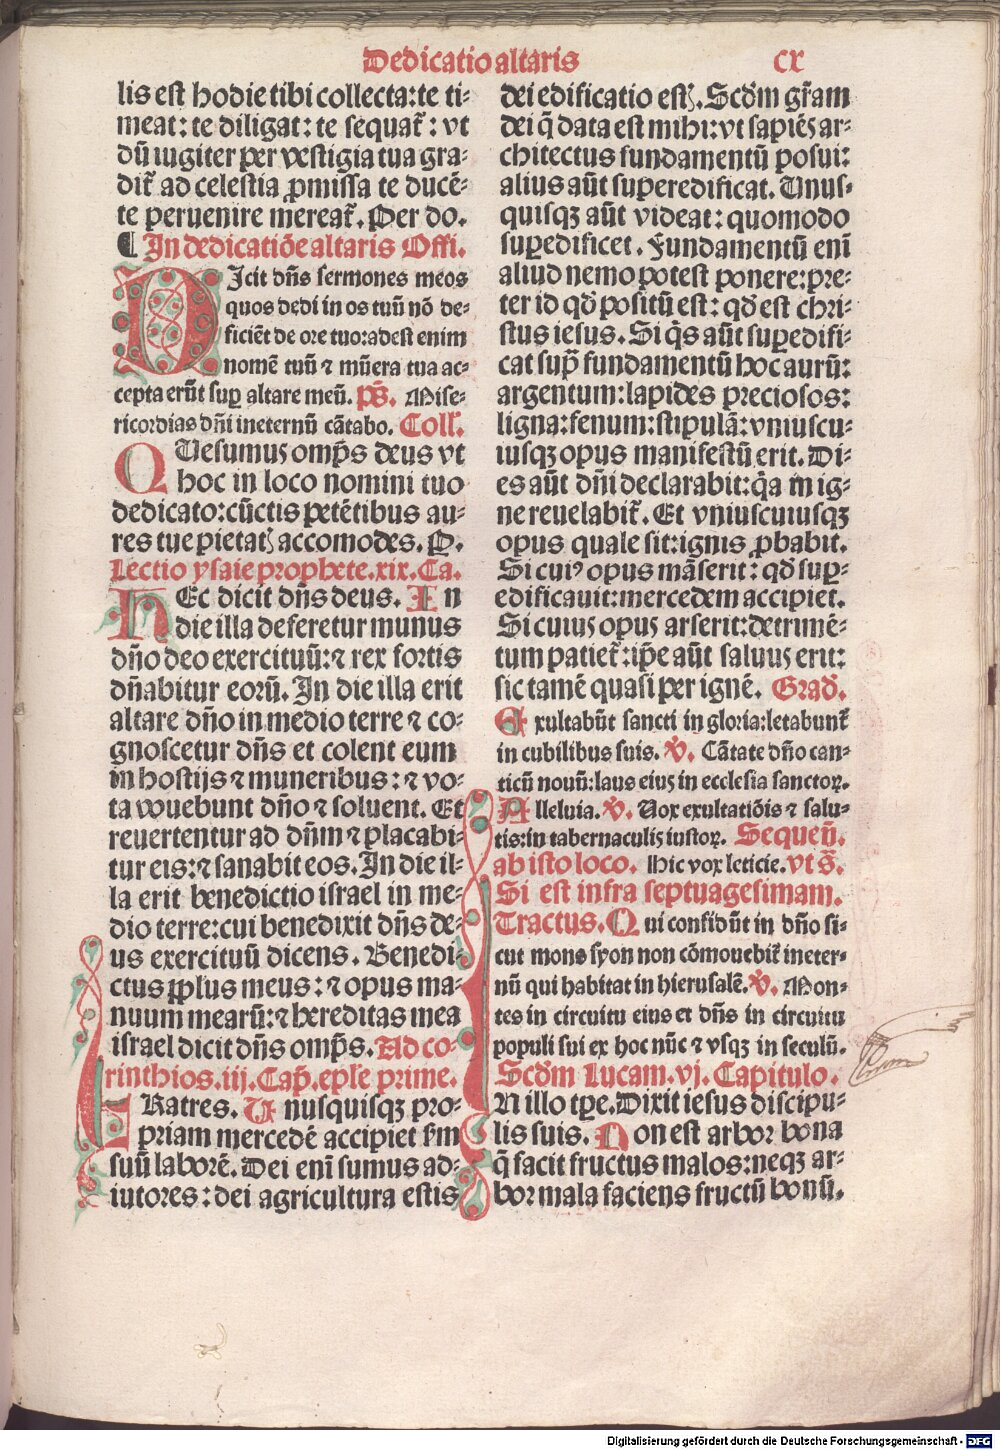 Dedicatio altaris
CX
lis est hodie tibi collecta: te ti⸗
meat: te diligat: te sequat᷑: vt
dū iugiter per vestigia tua gra⸗
dit᷑ ad celestia ꝓmissa te ducē⸗
te peruenire mereat᷑. Per do.
¶ In dedicatiōe altaris Offi.
DIcit dn̄s sermones meos
quos dedi in os tuū nō de⸗
ficiēt de ore tuo: adest enim
nomē tuū ⁊ mūera tua ac⸗
cepta erūt suꝑ altare meū. p̄s. Mise⸗
ricordias dn̄i ineternū cātabo. Coll'.
QUesumus omp̄s deus vt
hoc in loco nomini tuo
dedicato: cūctis petētibus au⸗
res tue pietatꝭ accomodes. P.
Lectio ysaie prophete. xix. Ca.
HEc dicit dn̄s deus. In
die illa deferetur munus
dn̄o deo exercituū: ⁊ rex fortis
dn̄abitur eorū. In die illa erit
altare dn̄o in medio terre ⁊ co⸗
gnoscetur dn̄s et colent eum
in hostijs ⁊ muneribus: ⁊ vo⸗
ta vouebunt dn̄o ⁊ soluent. Et
reuertentur ad dn̄m ⁊ placabi⸗
tur eis: ⁊ sanabit eos. In die il⸗
la erit benedictio israel in me⸗
dio terre: cui benedixit dn̄s de⸗
us exercituū dicens. Benedi⸗
ctus pp̄lus meus: ⁊ opus ma⸗
nuum mearū: ⁊ hereditas mea
israel dicit dn̄s omp̄s. Ad co⸗
rinthios. iij. Cap̄. ep̄le prime.
FRatres. Unusquisqꝫ pro⸗
priam mercedē accipiet ẜm
suū laborē. Dei enī sumus ad⸗
iutores: dei agricultura estis
dei edificatio estꝭ. Scd̄m gr̄am
dei q̄ data est mihi: vt sapiēs ar⸗
chitectus fundamentū posui:
alius aūt superedificat. Unus⸗
quisqꝫ aūt videat: quomodo
suꝑedificet. Fundamentū enī
aliud nemo potest ponere: pre⸗
ter id qd̄ positū est: qd̄ est chri⸗
stus iesus. Si q̄s aūt suꝑedifi⸗
cat sup̄ fundamentū hoc aurū:
argentum: lapides preciosos:
ligna: fenum: stipulā: vniuscu⸗
iusqꝫ opus manifestū erit. Di⸗
es aūt dn̄i declarabit: q̄a in ig⸗
ne reuelabit᷑. Et vniuscuiusqꝫ
opus quale sit: ignis ꝓbabit.
Si cuiꝰ opus māserit: qd̄ suꝑ⸗
edificauit: mercedem accipiet.
Si cuius opus arserit: detrimē⸗
tum patiet᷑: ip̄e aūt saluus erit:
sic tamē quasi per ignē. Grad.
Exultabūt sancti in gloria: letabunt᷑
in cubilibus suis. V̄. Cātate dn̄o can⸗
ticū nouū: laus eius in ecclesia sanctoꝝ.
Alleluia. V̄. Uox exultatiōis ⁊ salu⸗
tis: in tabernaculis iustoꝝ. Sequen̄.
ab isto loco. Hic vox leticie. vt s̄.
Si est infra septuagesimam.
Tractus. Qui confidūt in dn̄o si⸗
cut mons syon non cōmouebit᷑ ineter⸗
nū qui habitat in hierusalē. V̄. Mon⸗
tes in circuitu eius et dn̄s in circuitu
populi sui ex hoc nūc ⁊ vsqꝫ in seculū.
Scd̄m Lucam. vj. Capitulo.
IN illo tp̄e. Dixit iesus discipu⸗
lis suis. Non est arbor bona
q̄ facit fructus malos: neqꝫ ar⸗
bor mala faciens fructū bonū.
Digitalisierung gefördert durch die Deutsche Forschungsgemeinschaft - DFG